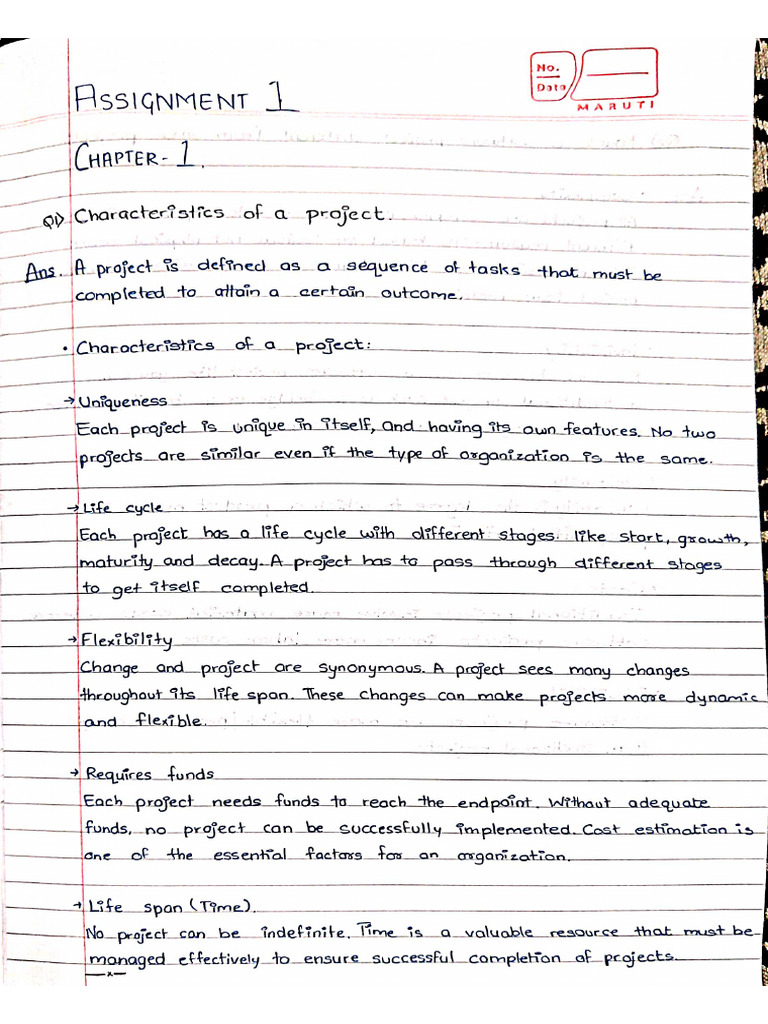 No.
Date
MARUTI
ASSIGNMENT 1
CHAPTER-1.
Q1) Characteristics of a project.
Ans. A project is defined as a sequence of tasks that must be
completed to attain a certain outcome.
• Characteristics of a project:
→ Uniqueness
Each project is unique in itself, and having its own features. No two
projects are similar even if the type of organization is the same.
→ Life cycle
Each project has a life cycle with different stages. like start, growth,
maturity and decay. A project has to pass through different stages
to get itself completed.
→ Flexibility
Change and project are synonymous. A project sees many changes
throughout its life span. These changes can make projects more dynamic
and flexible.
→ Requires funds
Each project needs funds to reach the endpoint. Without adequate
funds, no project can be successfully implemented. Cost estimation is
one of the essential factors for an organization.
→ Life span (Time).
No project can be indefinite. Time is a valuable resource that must be
managed effectively to ensure successful completion of projects.